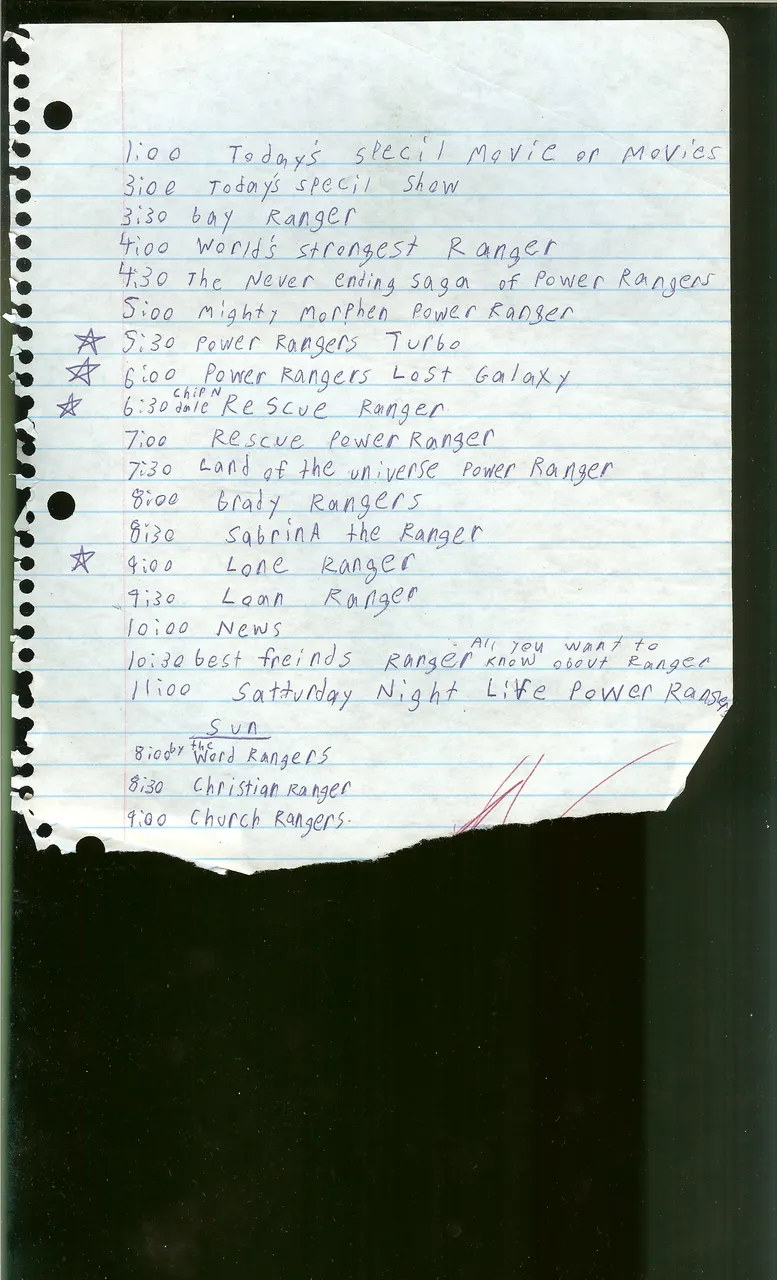 1:00 Today's specil Movie or Movies
3:00 Today's specil show
3:30 bay Ranger
4:00 World's strongest Ranger
4:30 The Never ending saga of Power Rangers
5:00 Mighty Morphen Power Ranger
5:30 Power Rangers Turbo
6:00 Power Rangers Lost Galaxy
6:30 Chip N dale Rescue Ranger
7:00 Rescue Power Ranger
7:30 Land of the universe Power Ranger
8:00 brady Rangers
8:30 SabrinA the Ranger
9:00 Lone Ranger
9:30 Loan Ranger
10:00 News
10:30 best freinds Ranger All you want to know about Ranger
11:00 Satturday Night Live Power Rangers
Sun
8:00 by the Word Rangers
8:30 Christian Ranger
9:00 Church Rangers.